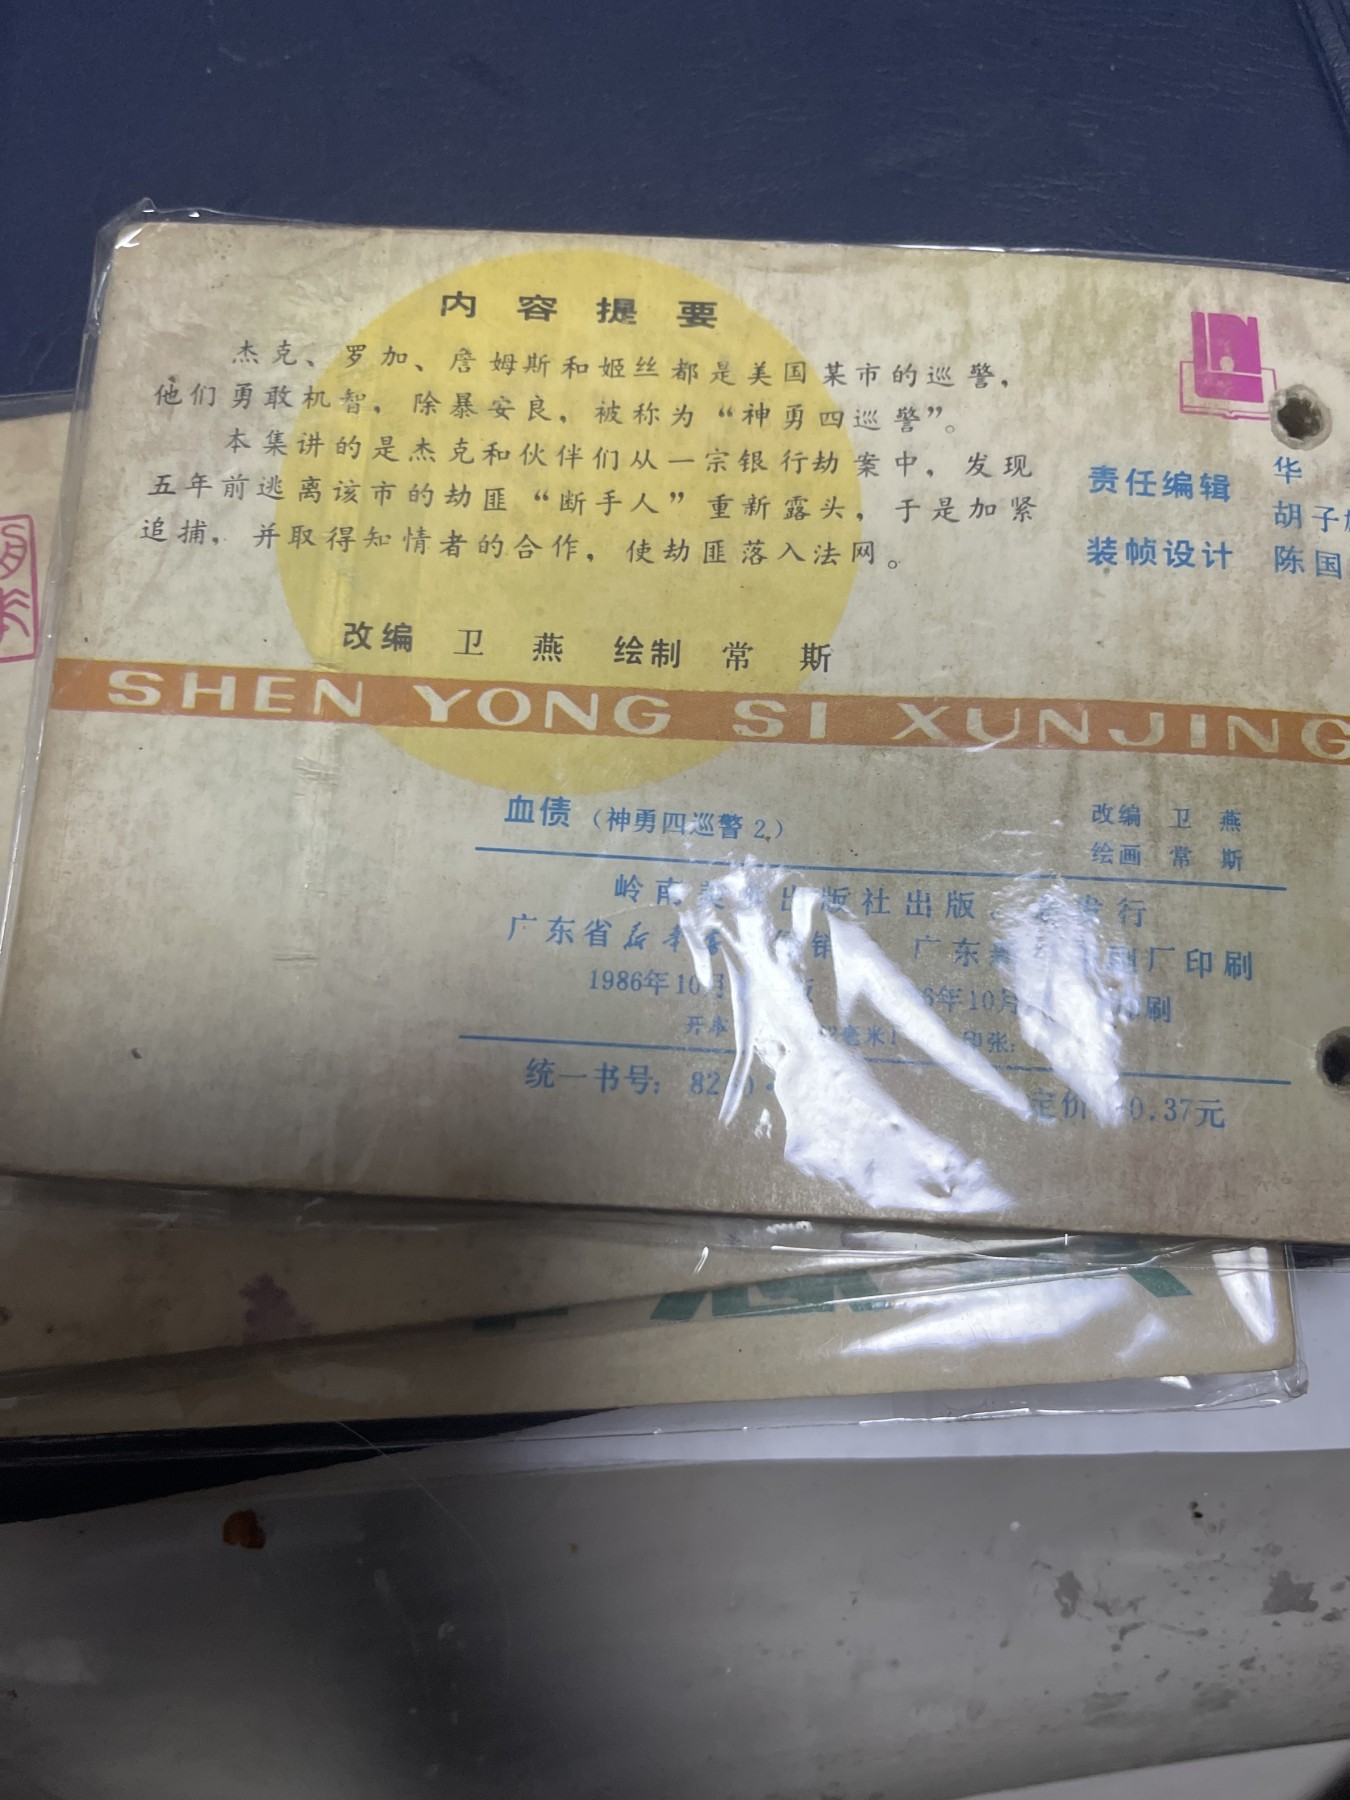 内容提要
杰克、罗加、詹姆斯和姬丝都是美国某市的巡警，
他们勇敢机智，除暴安良，被称为“神勇四巡警”。
本集讲的是杰克和伙伴们从一宗银行劫案中，发现
五年前逃离该市的劫匪“断手人”重新露头，于是加紧
追捕，并取得知情者的合作，使劫匪落入法网。
责任编辑 华
胡子
装帧设计 陈国
改编 卫燕 绘制 常斯
SHEN YONG SI XUNJING
血债（神勇四巡警2）
改编 卫燕
绘画 常斯
岭南 出版社出版 发行
广东省新华 销 广东 刷厂印刷
1986年10月 版 6年10月 印刷
开本 毫米 印张：
统一书号：82
定价 0.37元